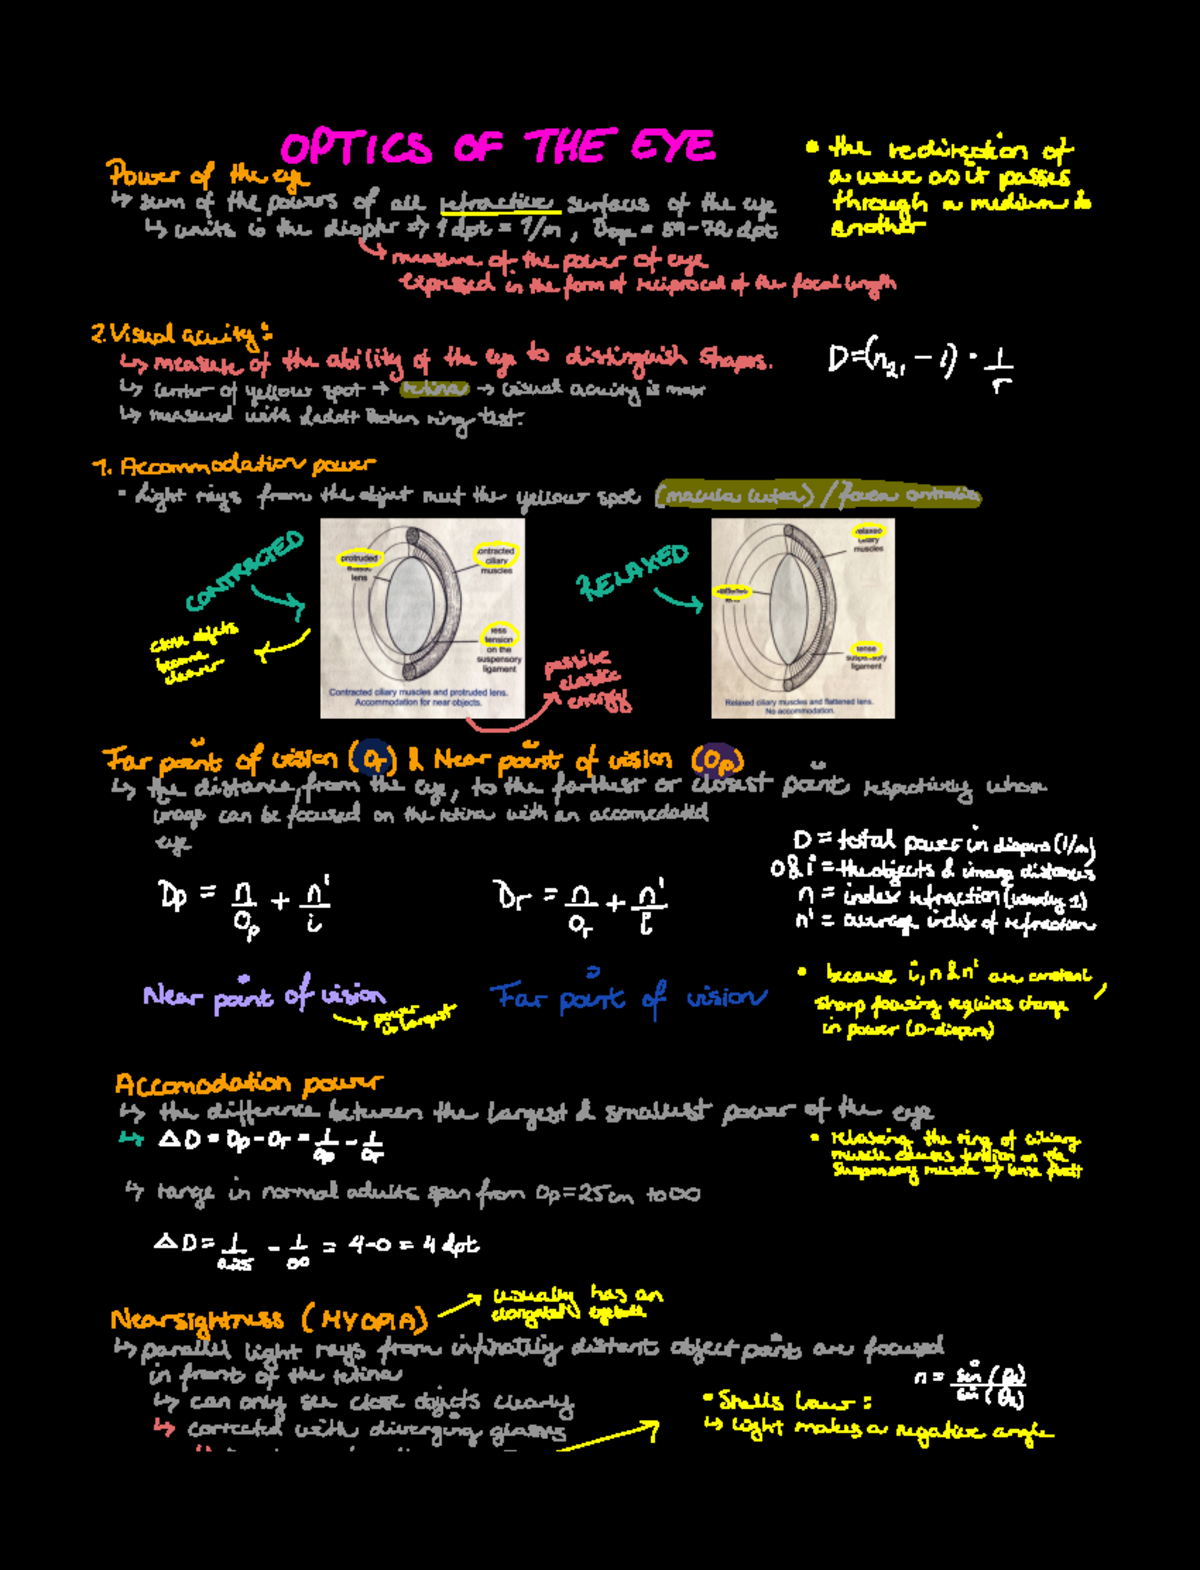 OPTICS OF THE EYE
• the redirection of
a wave as it passes
through a medium to
another
Power of the eye
↳ sum of the powers of all refractive surfaces of the eye
↳ units is the diopter => 1 dpt = 1/m, Deye = 59-72 dpt
↳ measure of the power of eye
expressed in the form of reciprocal of the focal length
2. Visual acuity:
↳ measure of the ability of the eye to distinguish shapes.
↳ center of yellow spot → retina → visual acuity is max
↳ measured with Broken ring test.
D=(n₂₁ - 1) · 1/r
1. Accommodation power
• light rays from the object meet the yellow spot (macula lutea) / fovea centralis
CONTRACTED
close objects
become
clearer
protruded
lens
contracted
ciliary
muscles
less
tension
on the
suspensory
ligament
Contracted ciliary muscles and protruded lens.
Accommodation for near objects.
passive
elastic
energy
RELAXED
relaxed
ciliary
muscles
tense
suspensory
ligament
Relaxed ciliary muscles and flattened lens.
No accommodation.
Far point of vision (Or) & Near point of vision (Op)
↳ the distance, from the eye, to the farthest or closest point respectively whose
image can be focused on the retina with an accomedated
eye
Dp = n/Op + n'/i
Dr = n/Or + n'/i
D = total power in diopers (1/m)
O & i = the objects & image distances
n = index refraction (usually 1)
n' = average index of refraction
Near point of vision
→ power
is largest
Far point of vision
• because i, n & n' are constant,
sharp focusing requires change
in power (D-diopers)
Accomodation power
↳ the difference between the largest & smallest power of the eye
↳ ΔD = Dp - Dr = 1/Op - 1/Or
• relaxing the ring of ciliary
muscle causes tension on the
suspensory muscle => lens flatt
↳ range in normal adults span from Op = 25 cm to ∞
ΔD = 1/0.25 - 1/∞ = 4-0 = 4 dpt
Nearsightness (MYOPIA)
→ usually has an
elongated eyeball
↳ parallel light rays from infinately distant object points are focused
in front of the retina
↳ can only see close objects clearly
↳ corrected with diverging glasses
• Snells law:
n = sin(θ₁)/sin(θ₂)
↳ light makes a negative angle